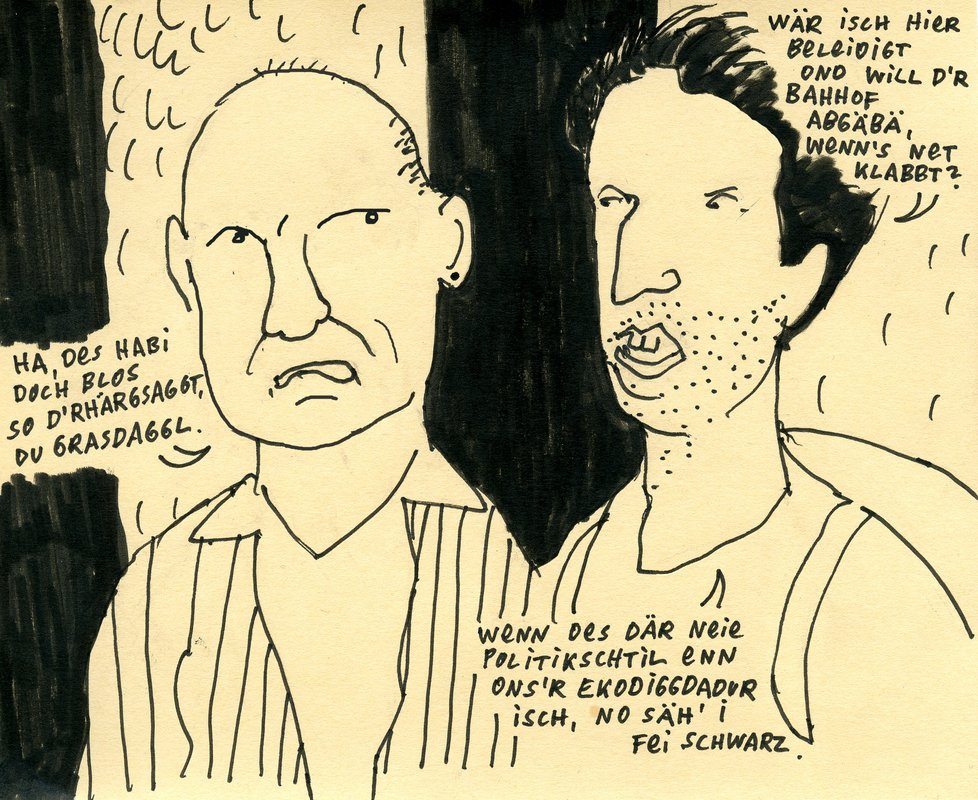 WÄR iSCH HiER
BELEiDiGT
OND WiLL D'R
BAHHOF
ABGÄBÄ,
WENN'S NET
KLABBT?
HA, DES HABi
DOCH BLOS
SO D'RHÄRGSAGGT,
DU GRASDAGGL.
WENN DES DÄR NEiE
POLiTiKSCHTiL ENN
ONS'R EKODiGGDADUR
iSCH, NO SÄH' i
FEi SCHWARZ.